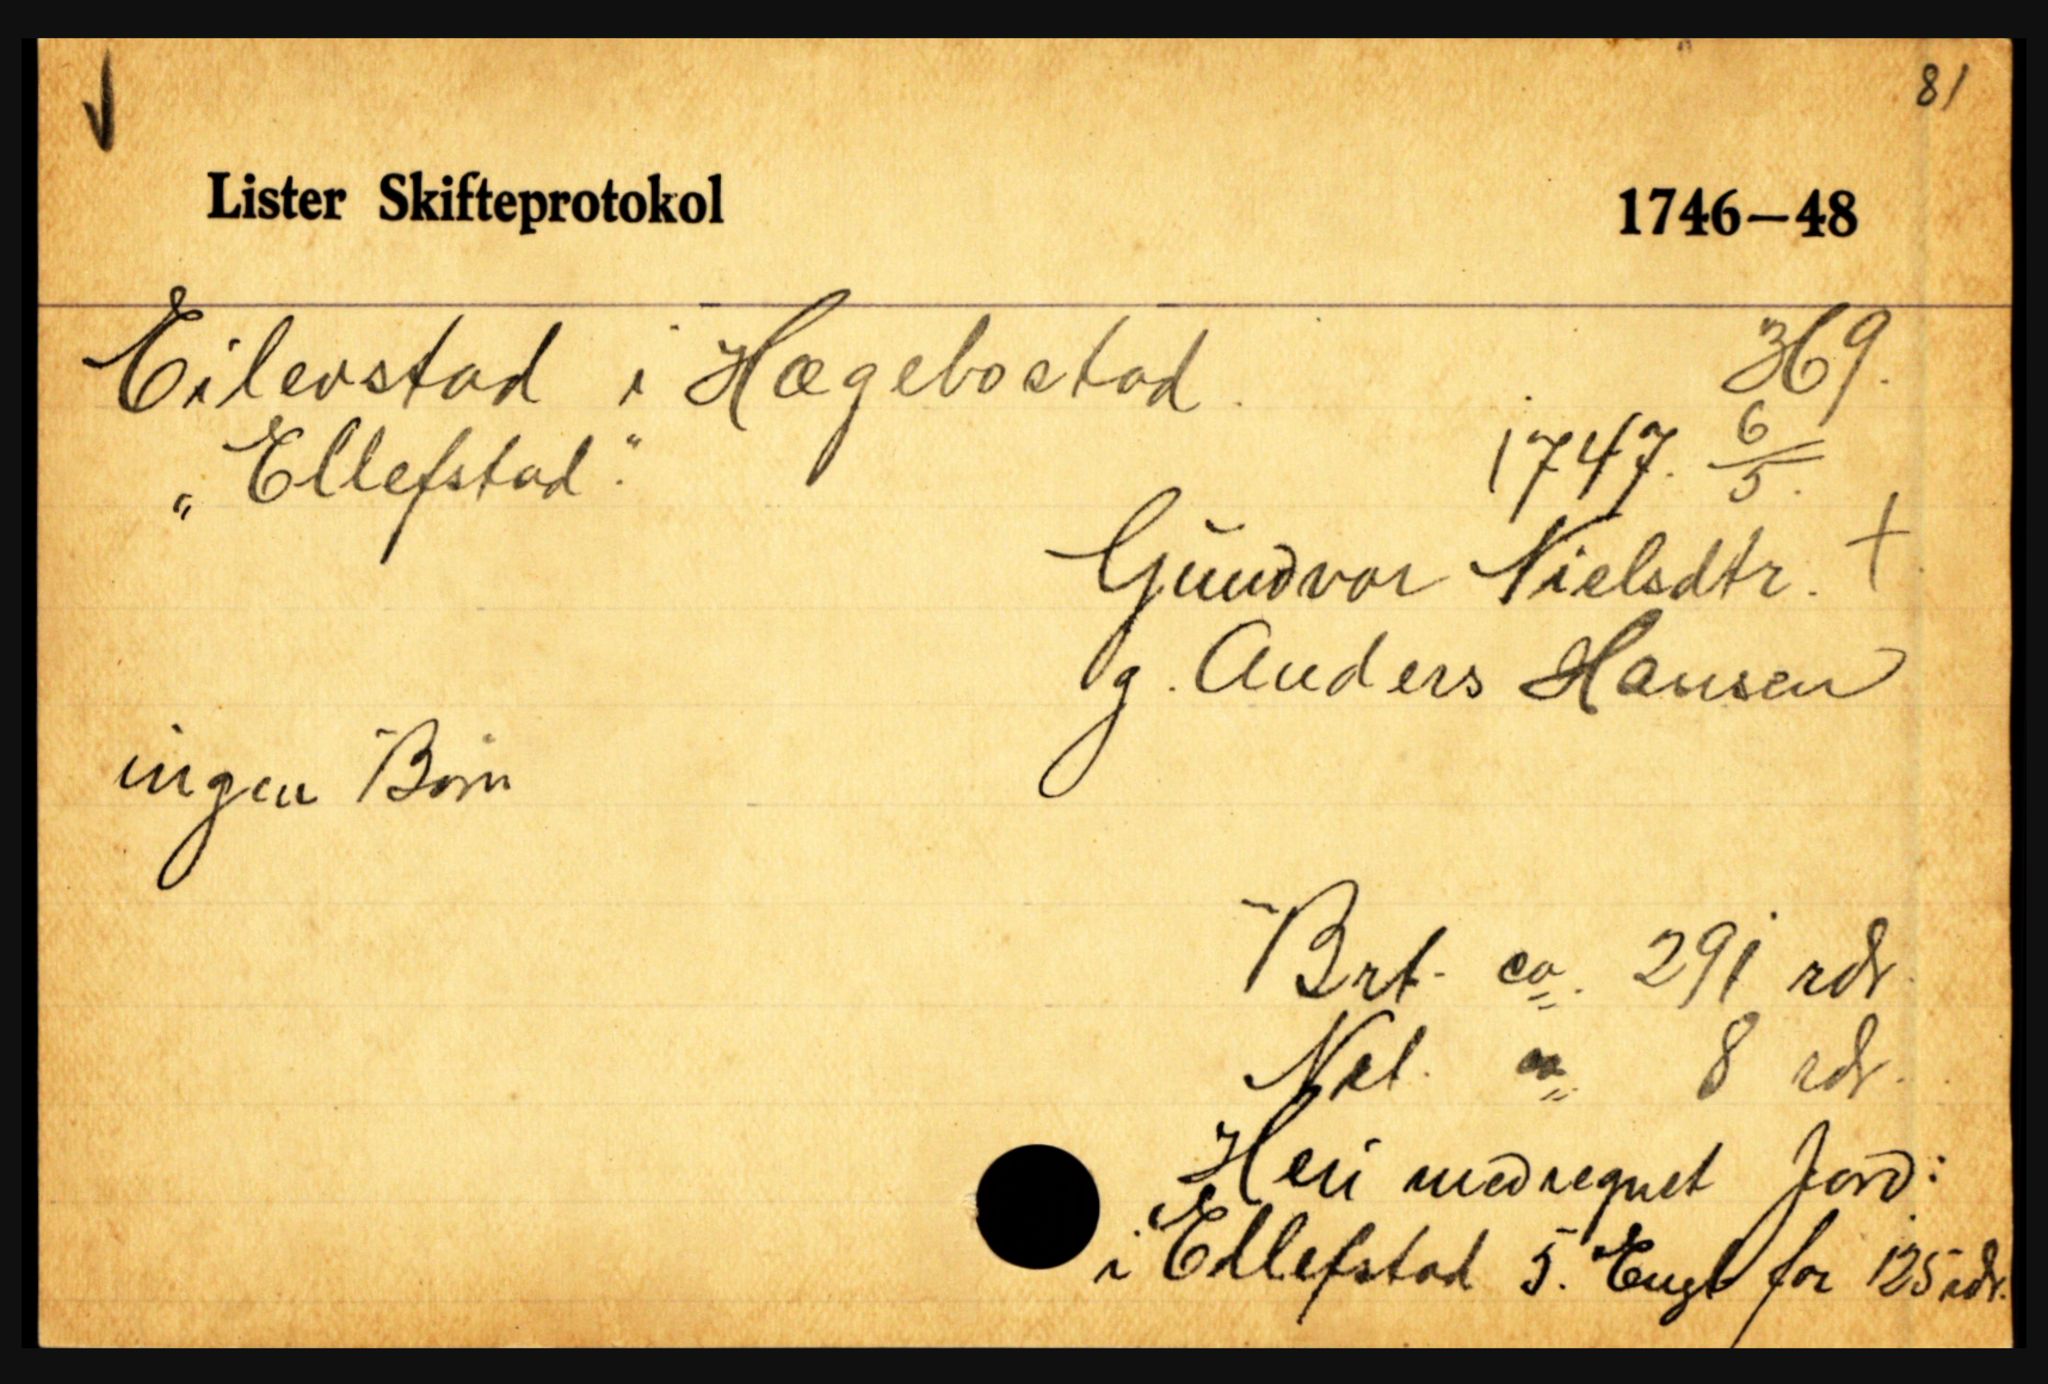 81
Lister Skifteprotokol 1746–48
Eilevstad i Hægebostad. 369.
„Ellefstad." 1747. 6/5.
Gŭndvor Nielsdtr. †.
g. Anders Hansen
ingen Born
Brt. ca. 291 rdr.
Net. ca. 8 rdr.
Heri medregnet Jord:
i Ellefstad 5. Engl for 125 rdr.